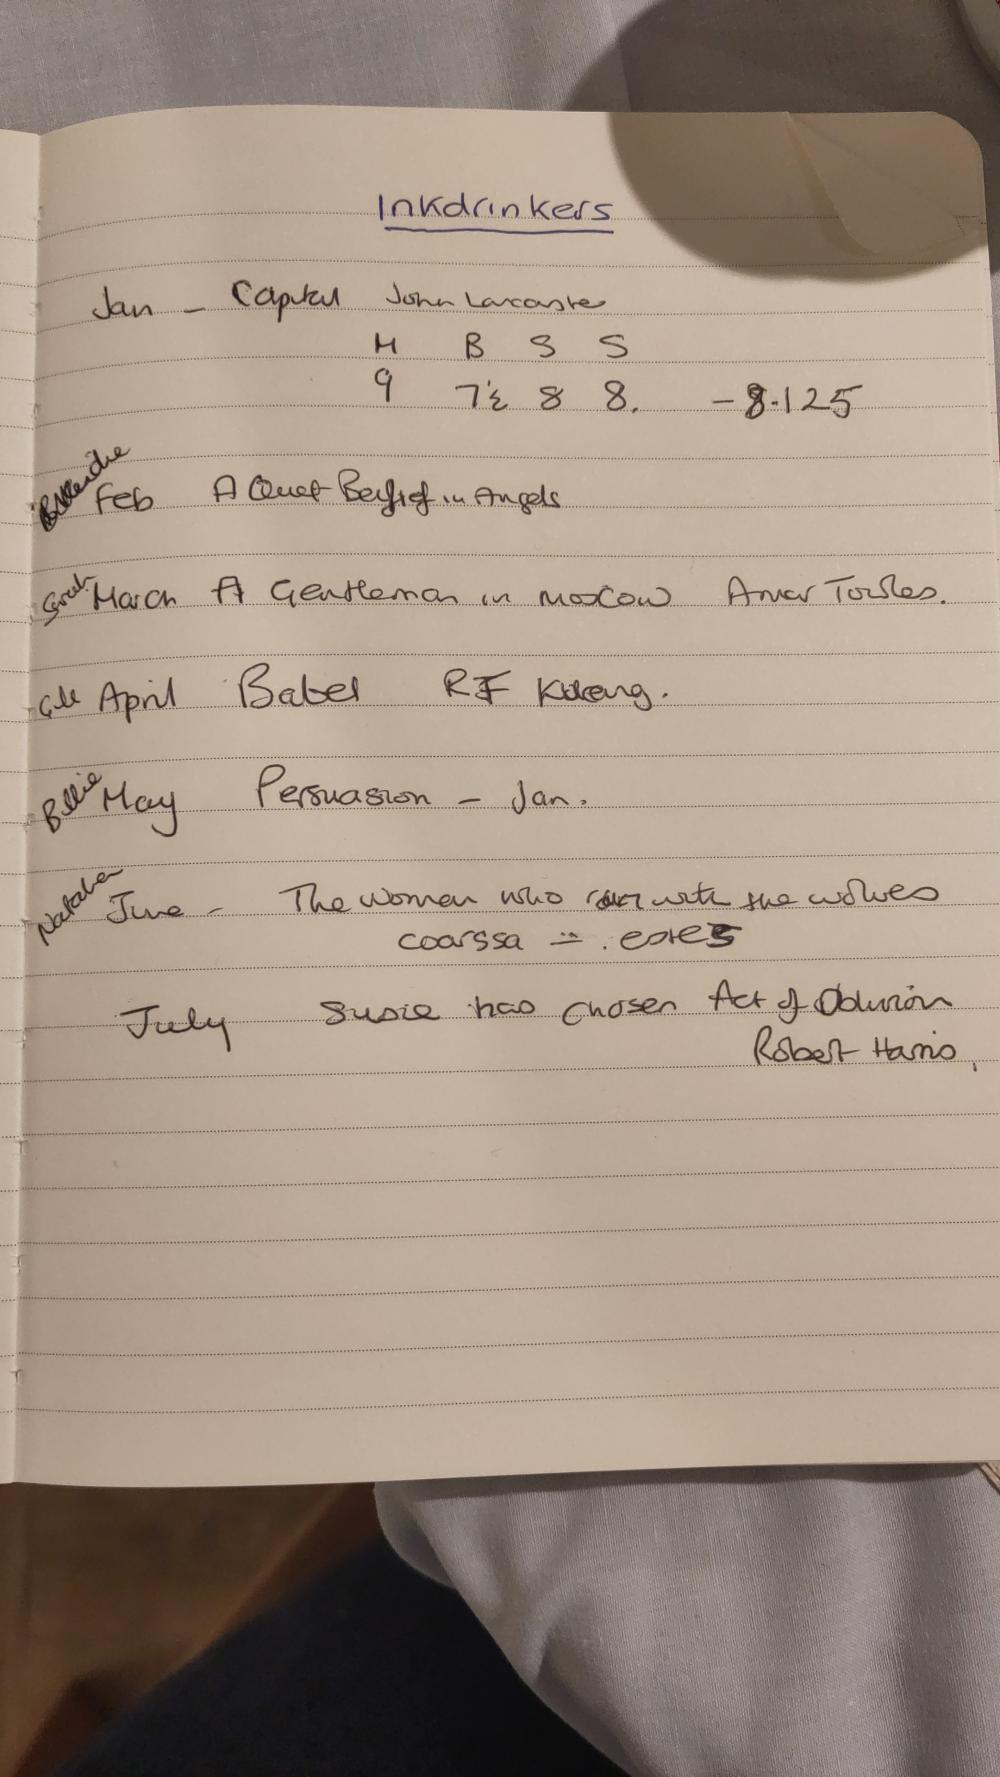 Inkdrinkers
Jan - Capital John Lancaster
H B S S
9 7½ 8 8. - 8.125
Feb A Quiet Belief in Angels
Sarah March A Gentleman in Moscow Amor Towles.
April Babel RF Kuang.
Billie May Persuasion - Jan.
Natalie June - The women who run with the wolves
July Susie has chosen Act of Oblivion
Robert Harris,